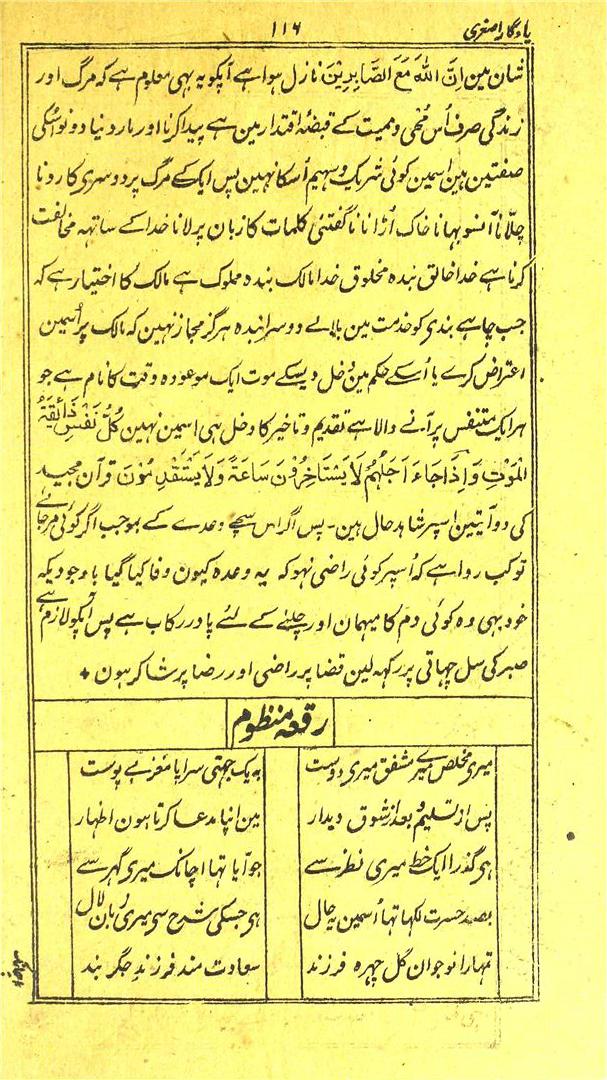 یادگار اصغری ۱۱۶
شان مین اِنَّ اللّٰهَ مَعَ الصَّابِرِیْنَ نازل ہوا ہے آپکو یہ بہی معلوم ہے کہ مرگ اور
زندگی صرف اُس مُحی و ممیت کے قبضۂ اقتدار مین ہے پیدا کرنا اور مارد نیا دونو اسکی
صفتین ہین اسمین کوئی شریک و سہیم اُسکا نہین پس ایک کے مرگ پر دوسری کا رونا
چلّانا آنسو بہانا خاک اُڑانا ناگفتنی کلمات کا زبان پر لانا خدا کے ساتہہ مخالفت
کرنا ہے خدا خالق بندہ مخلوق خدا مالک بندہ مملوک ہے مالک کا اختیار ہے کہ
جب چاہے بندی کو خدمت مین بلالے دوسرا بندہ ہرگز مجاز نہین کہ مالک پر اُسمین
اعتراض کرے یا اُسکے حکم مین دخل دیسکے موت ایک موعودہ وقت کا نام ہے جو
ہر ایک متنفس پر آنے والا ہے تقدیم و تاخیر کا دخل ہی اسمین نہین کُلُّ نَفْسٍ ذَائِقَةُ
الْمَوْتِ وَاِذَا جَاءَ اَجَلُهُمْ لَا یَسْتَاخِرُوْنَ سَاعَةً وَلَا یَسْتَقْدِمُوْنَ قرآن مجید
کی دو آیتین اسپر شاہد حال ہین۔ پس اگر اس سچے وعدے کے بموجب اگر کوئی مرجائے
تو کب روا ہے کہ اُسپر کوئی راضی نہو کہ یہ وعدہ کیون وفا کیا گیا باوجودیکہ
خود بہی وہ کوئی دم کا میہمان اور چلنے کے لئے پا در رکاب ہے پس آپکو لازم ہے
صبر کی سل چہاتی پر رکہہ لین قضا پر راضی اور رضا پر شاکر ہون +
رقعہ منظوم
میری مخلص میرے مشفق میری دوست بہ یک جہتی سراپا مغز بے پوست
پس از تسلیم و بعد از شوق دیدار مین اپنا مدعا کرتا ہون اظہار
ہی گذرا ایک خط میری نظر سے جو آیا تہا اچانک میری گہر سے
بصد حسرت لکہا تہا اُسمین یہ حال ہی جسکی شرح سی میری زبان لال
تمہارا نوجوان گل چہرہ فرزند سعادت مند فرزندِ جگر بند